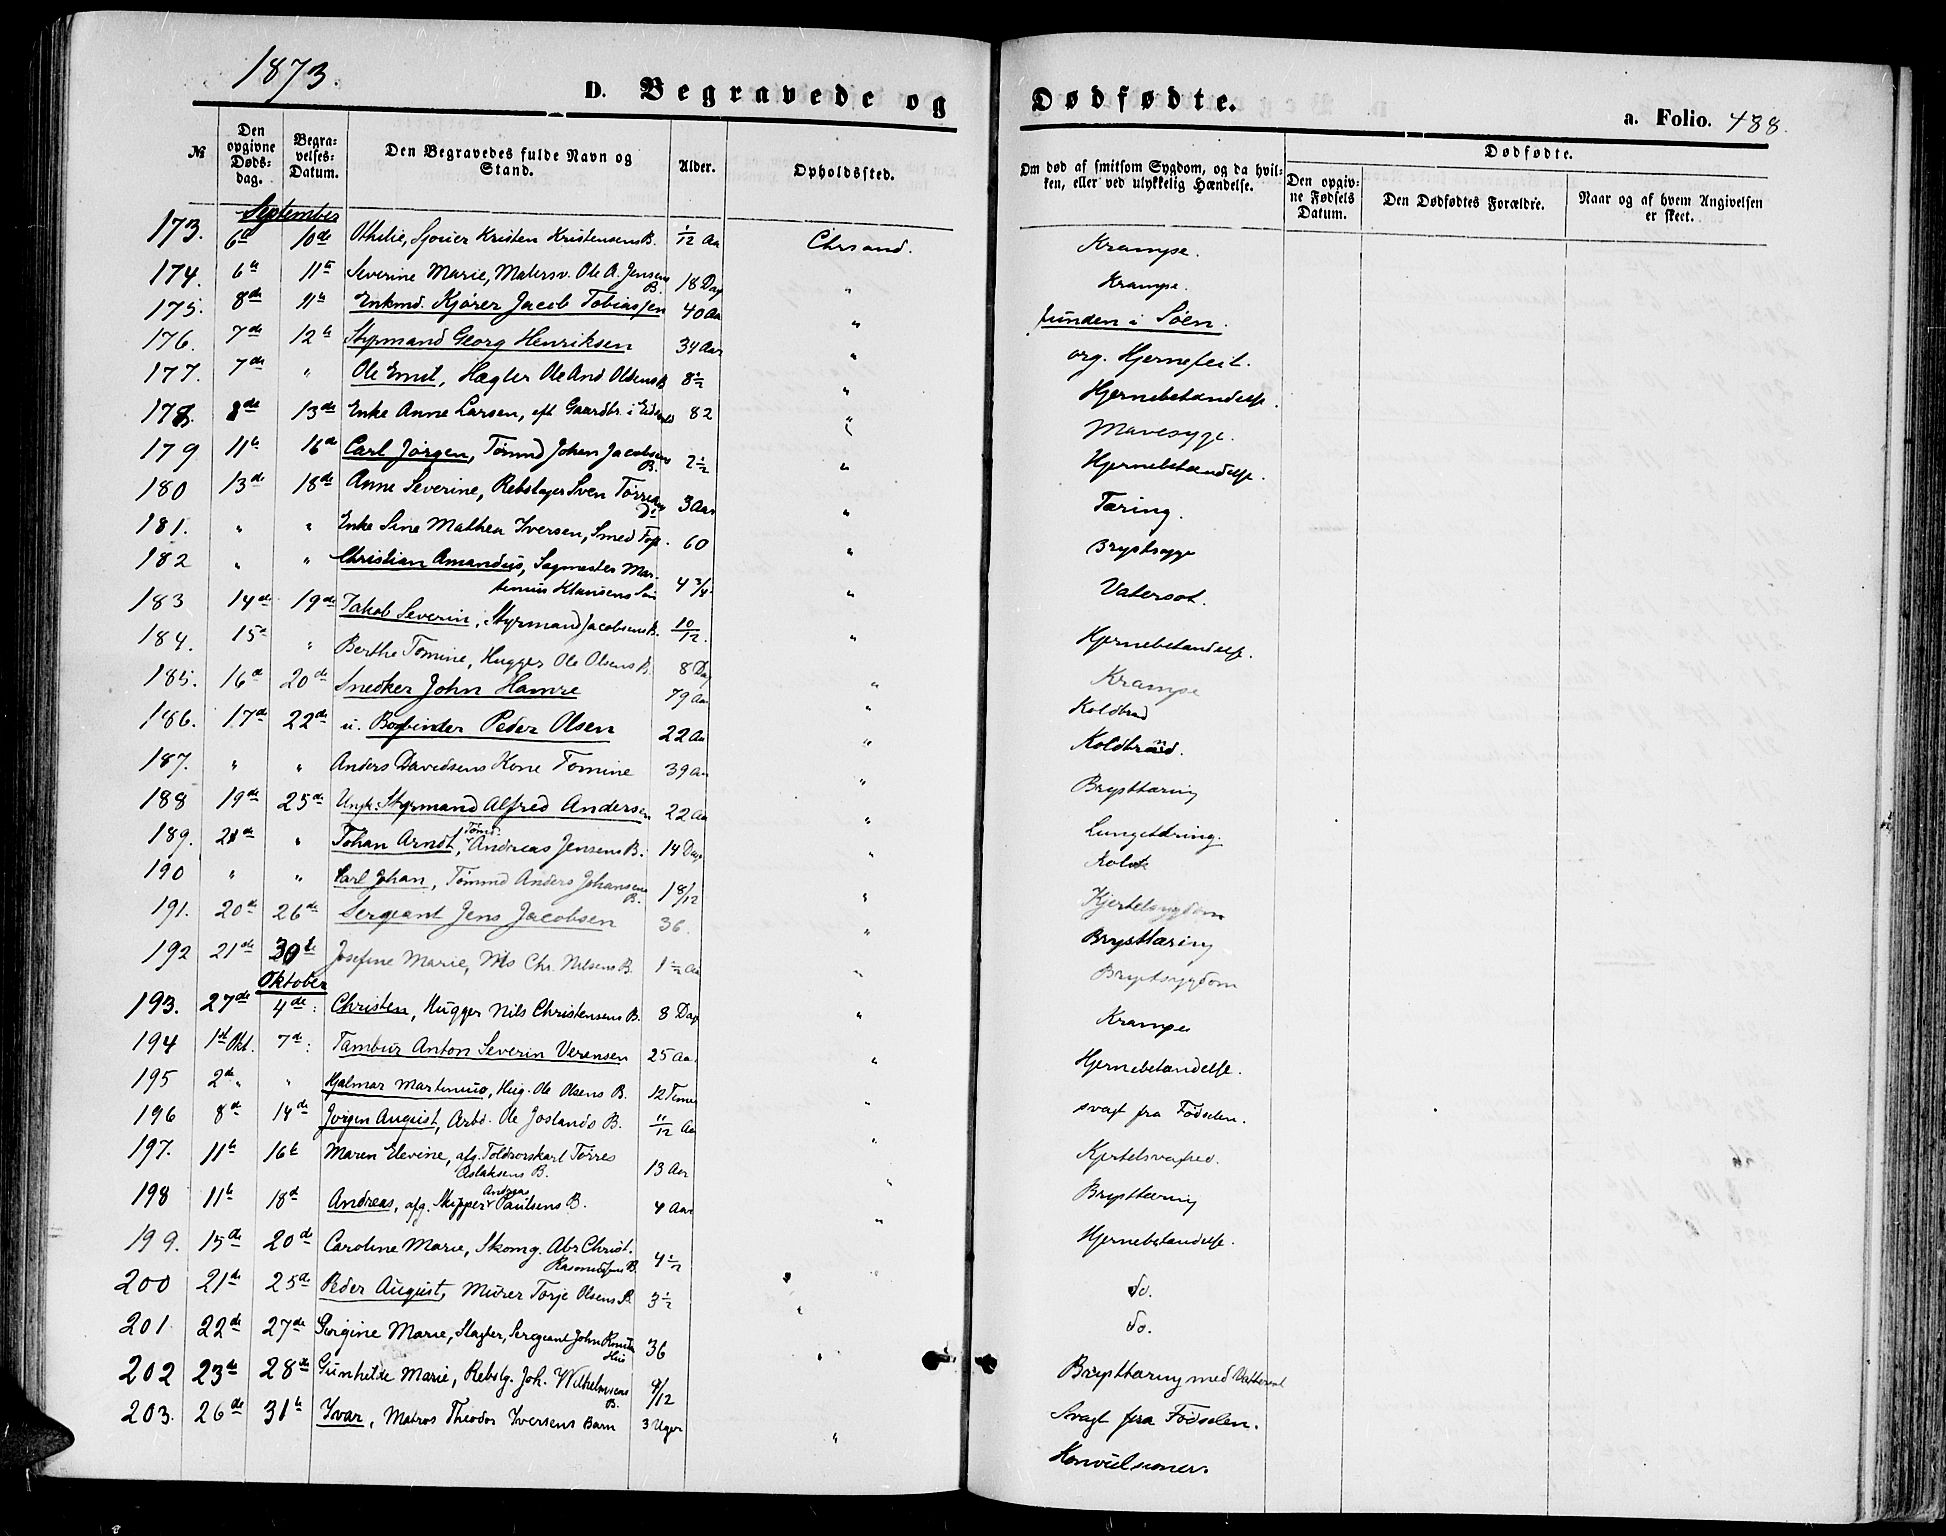 1873.
D. Begravede og Dødfødte.
a. Folio. 488.
№
Den opgivne Døds-dag.
Begra-velses-Datum.
Den Begravedes fulde Navn og Stand.
Alder.
Opholdssted.
Om død af smitsom Sygdom, og da hvil-ken, eller ved ulykkelig Hændelse.
Dødfødte.
Den opgiv-ne Fødsels Datum.
Den Dødfødtes Forældre.
Naar og af hvem Angivelsen er skeet.
September
173. 6d 10de Othilie, Kristen Kristensens B. 1/12 Aa Chrsand. Krampe.
174. 6te 11te Severine Marie, Matersv. Ole A. Jensens B. 18 Dag " Krampe.
175. 8de 11te Enkmd. Kjører Jacob Tobiassen 40 Aa " funden i Søen.
176. 7de 12te Styrmand Georg Henriksen 34 Aar " org. Hjernefeil.
177. 7de " Ole Emil, Hægler Ole And Olsens B. 8 1/2 " Hjernebetændelse.
178. 8de 13de Enke Anne Larsen, eft Gaardbr. i 82 " Mavesyge.
179 11te 16de Carl Jørgen, Tømmd Johan Jacobsens B. 2 1/2 " Hjernebetændelse.
180 13de 18de Anne Severine, Rebslager Sven 3 Aar " Tæring.
181. " " Enke Sine Mathea Iversen, Smed 60 " Brystsyge
182 " " Christian Amandus, Sagmester Mar-tinius Klausens Søn 4 3/4 " Vatersot.
183 14de 19de Jakob Severin, Styrmand Jacobsens B. 10/12. " Hjernebetændelse.
184. 15de " Berthe Tomine, Hugger Ole Olsens B. 8 Dag Krampe
185. 16de 20de Snedker John Hamre 79 Aa " Koldbrand
186. 17de 22de u. Bogbinder Peder Olsen 22 Aa " Koldbrand.
187. " " Anders Davidsens Kone Tomine 39 Aa " Brysttæring
188 19de 25de Ungk. Styrmand Alfred Andersen 22 Aa " Lungetæring.
189. 21de " Johan Arndt, Tømd. Andreas Jensens B. 14 Dage "
190 " " Carl Johan, Tømmd Anders Johansens B. 1 8/12 " Kjertelsygdom
191. 20de 26de Sergeant Jens Jacobsen 36. " Brysttæring
192 21de 30te Josefine Marie, Chr. Nilsens B. 1 1/2 Aa " Brystsygdom
Oktober
193. 27de 4de: Christen, Hugger Nils Christensens B. 8 Dage " Krampe
194 1st Okt. 7de: Tambur Anton Severin Verensen 25 Aa. " Hjernebetændelse.
195 2de " " Hjalmar Martinius, Hug. Ole Olsens B. 12 Timer " svagt fra Fødselen.
196 8de 14de Jørgen August, Arbd. Ole Joslands B. 11/12 Aa " Kjertelsvaghed.
197. 11te 16te Maren Elevine, afg. Toldrorskarl Tørres Aslaksens B. 13 Aar " Brysttæring
198 11te 18de Andreas, afg. Skipper Andreas Paulsens B. 4 Aar " Hjernebetændelse.
199. 15de 20de Caroline Marie, Skomg. Abr Christ. B. 4 1/2 " do.
200 21de 25de Peder August, Murer Torje Olsens B. 3 1/2 " do.
201 22de 27de Georgine Marie, Sergeant John 36 " Brysttæring med Vattersot
202 23de 28de Gunhilde Marie, Rebslg. Joh. Wilhelmsens B. 9/12 Svagt fra Fødselen.
203. 26de 31te Ivar, Matros Theodor Iversens Barn 3 Uger " Konvulsioner.